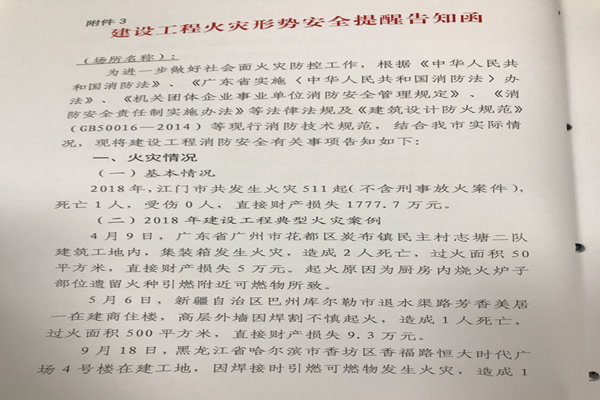 附件3
建设工程火灾形势安全提醒告知函
（场所名称）：
为进一步做好社会面火灾防控工作，根据《中华人民共
和国消防法》、《广东省实施〈中华人民共和国消防法〉办
法》、《机关团体企业事业单位消防安全管理规定》、《消
防安全责任制实施办法》等法律法规及《建筑设计防火规范》
（GB50016—2014）等现行消防技术规范，结合我市实际情
况，现将建设工程消防安全有关事项告知如下：
一、火灾情况
（一）基本情况
2018年，江门市共发生火灾511起(不含刑事放火案件)，
死亡1人，受伤0人，直接财产损失1777.7万元。
（二）2018年建设工程典型火灾案例
4月9日，广东省广州市花都区炭布镇民主村志塘二队
建筑工地内，集装箱发生火灾，造成2人死亡，过火面积50
平方米，直接财产损失5万元。起火原因为厨房内烧火炉子
部位遗留火种引燃附近可燃物所致。
5月6日，新疆自治区巴州库尔勒市退水渠路芳香美居
一在建商住楼，高层外墙因焊割不慎起火，造成1人死亡，
过火面积500平方米，直接财产损失9.3万元。
9月18日，黑龙江省哈尔滨市香坊区香福路恒大时代广
场4号楼在建工地，因焊接时引燃可燃物发生火灾，造成1